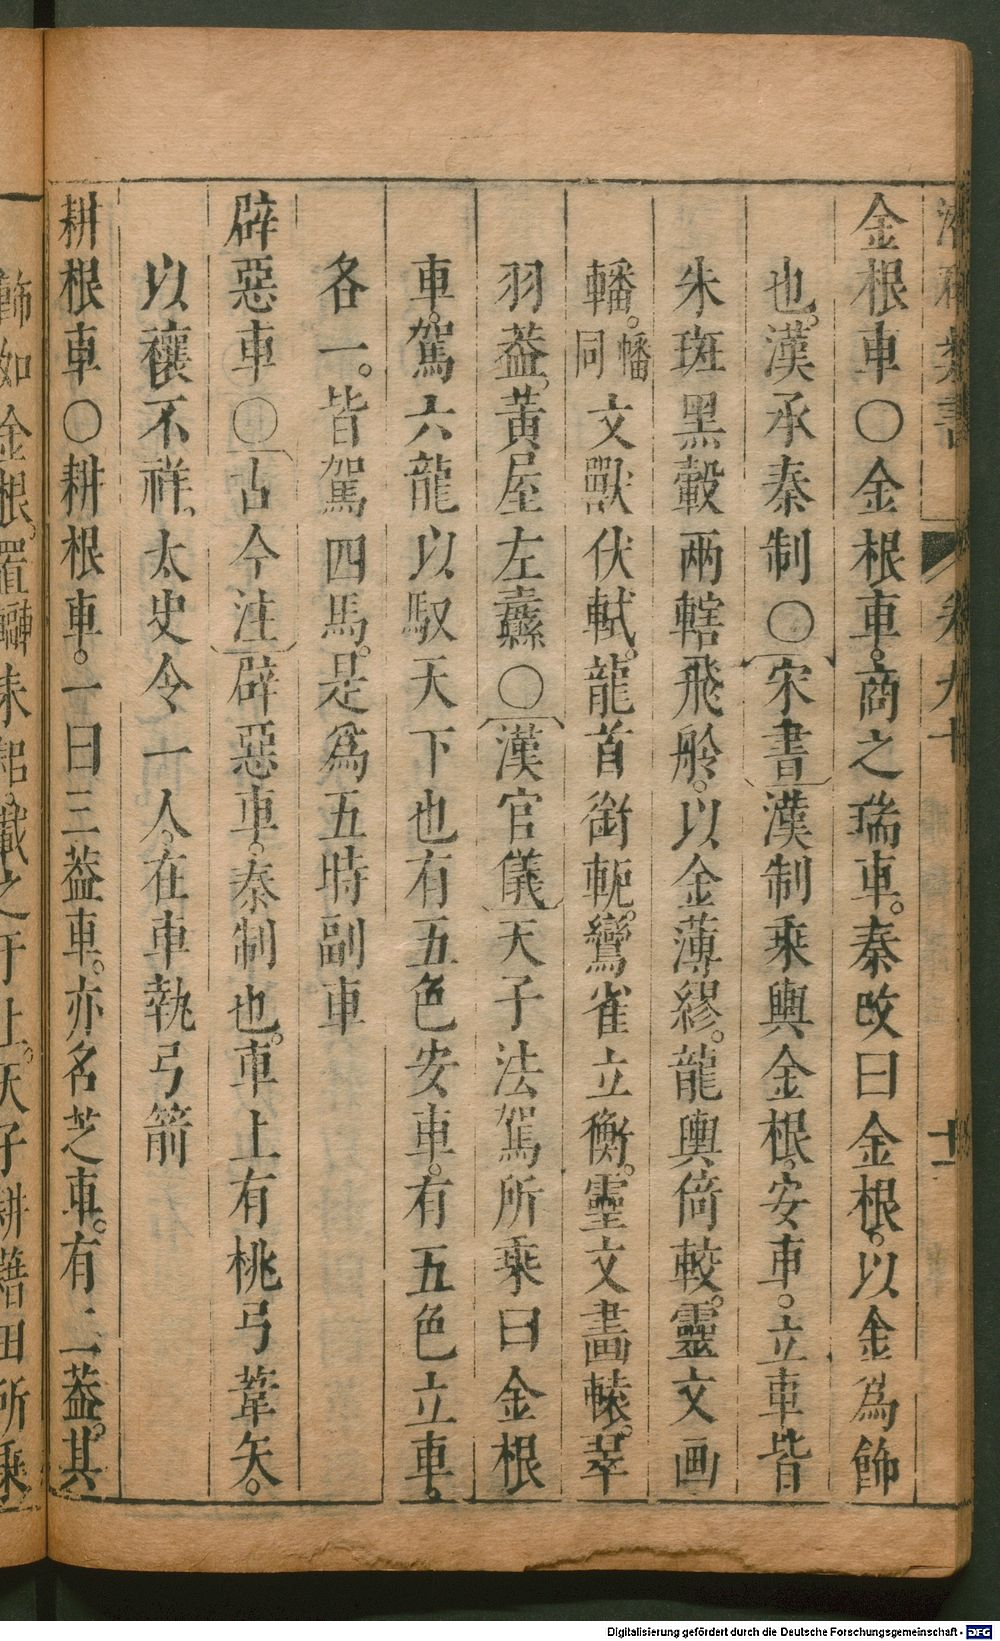 金根車〇金根車。商之瑞車。秦改曰金根。以金為飾
也。漢承秦制〇宋書漢制乘輿金根。安車。立車皆
朱斑黑轂兩轄飛軨。以金薄繆。龍輿倚較。靈文画
轓。幡同文獸伏軾。龍首銜軛。鸞雀立衡。靈文畵轅。翠
羽葢。黃屋左纛〇漢官儀天子法駕所乘曰金根
車。駕六龍以馭天下也有五色安車。有五色立車。
各一。皆駕四馬。是爲五時副車
辟惡車〇古今注辟惡車。秦制也。車上有桃弓葦矢。
以禳不祥。太史令一人。在車執弓箭
耕根車〇耕根車。一曰三葢車。亦名芝車。有二葢。其
飾如金根。置耒耜之上。天子耕藉田所乘
卷九十
十一
Digitalisierung gefördert durch die Deutsche Forschungsgemeinschaft - DFG